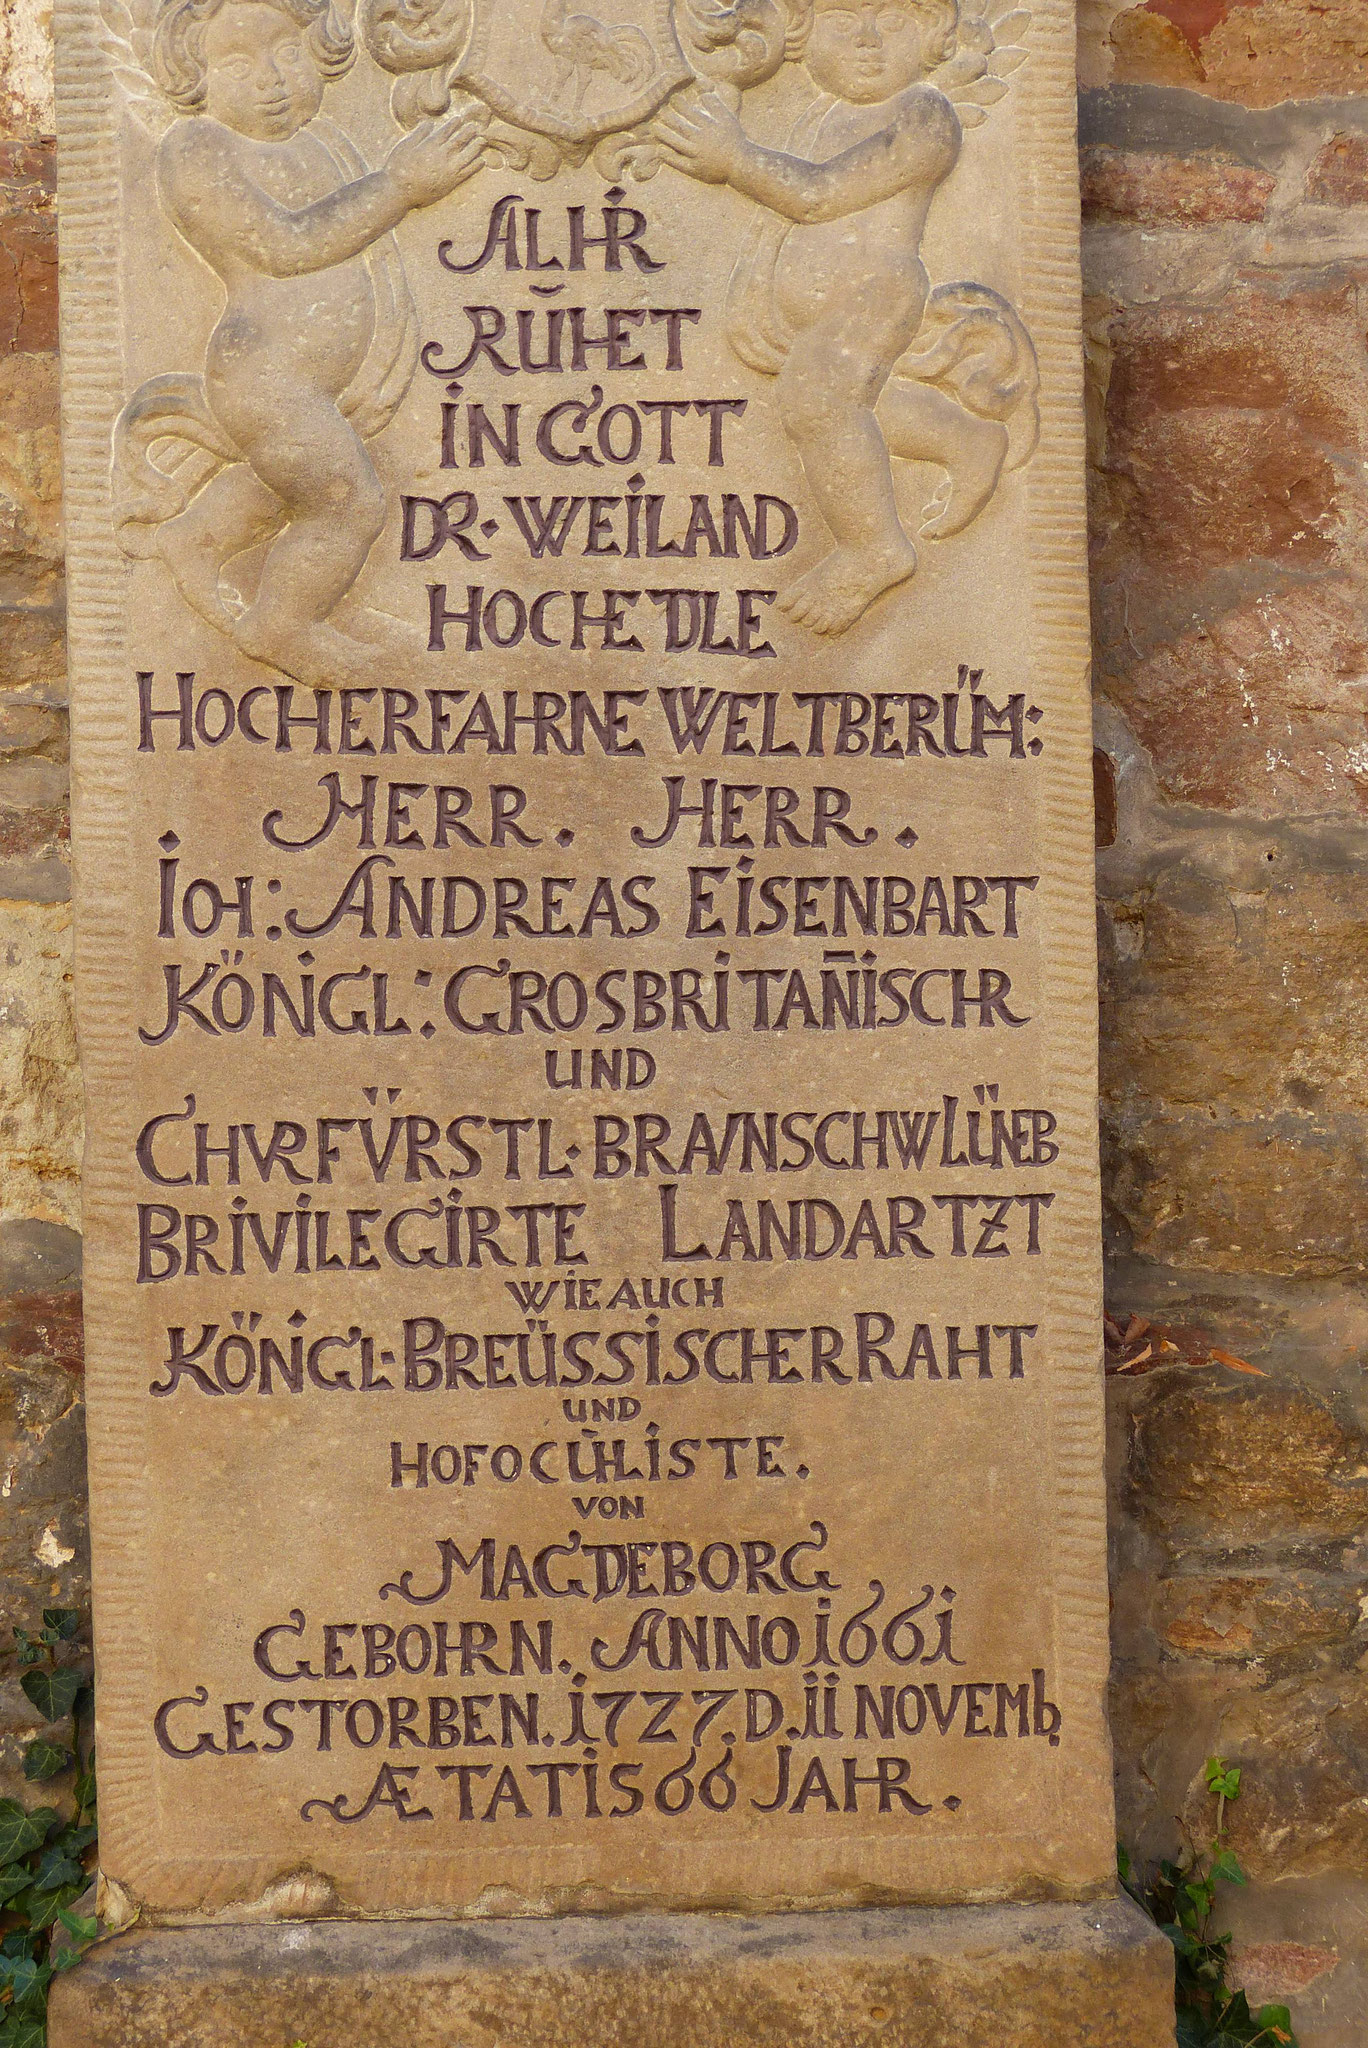 ALHIR
RŬHET
IN GOTT
DR · WEILAND
HOCHEDLE
HOCHERFAHRNE WELTBERÜM:
HERR . HERR .
IOH: ANDREAS EISENBART
KÖNIGL: GROSBRITAÑISCHR
UND
CHVRFVRSTL · BRAVNSCHWLÜNEB
BRIVILEGIRTE LANDARTZT
WIE AUCH
KÖNIGL · BREÜSSISCHER RAHT
UND
HOFOCULISTE .
VON
MAGDEBORG
GEBOHRN. ANNO 1661
GESTORBEN. 1727. D. 11 NOVEMb.
ÆTATIS 66 JAHR .